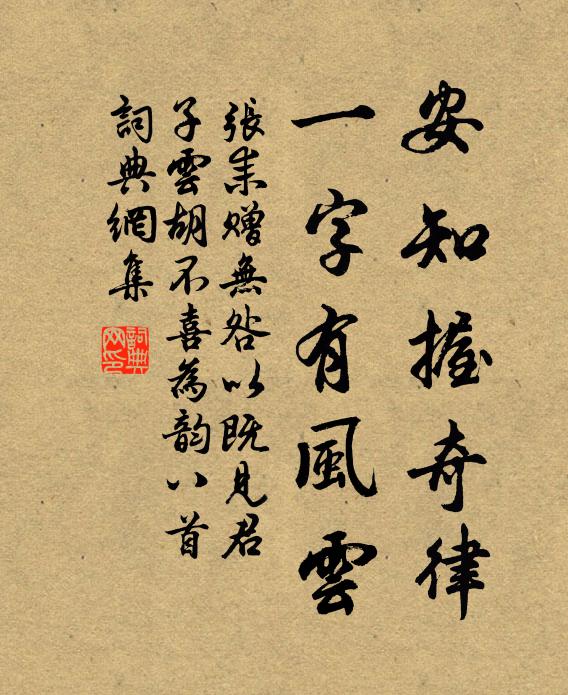 安知握奇律
一字有風雲
張耒贈無咎以既見君
子雲胡不喜為韵八首
詞典網集
詞典网印